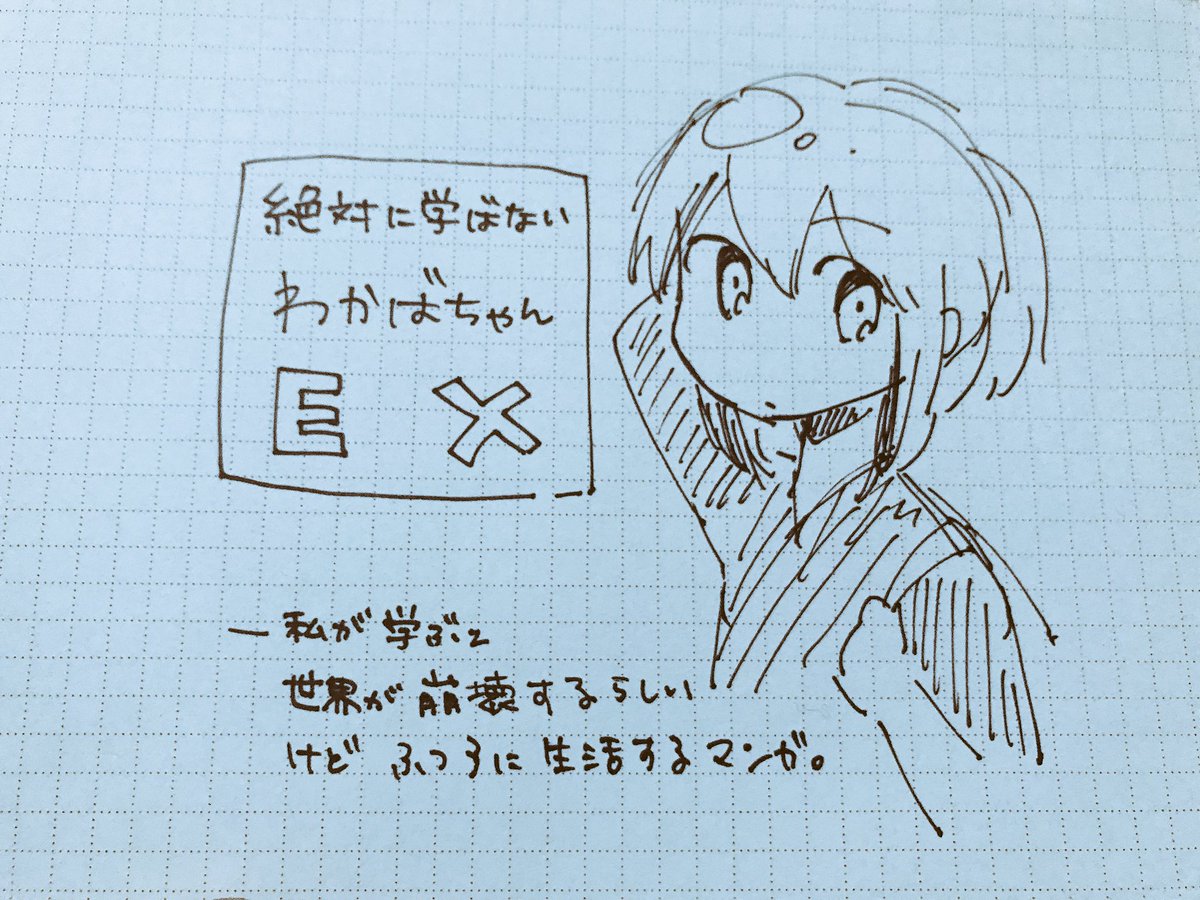 絶対に学ばない
わかばちゃん
EX
― 私が学ぶと
世界が崩壊するらしい
けど ふつうに生活するマンガ。